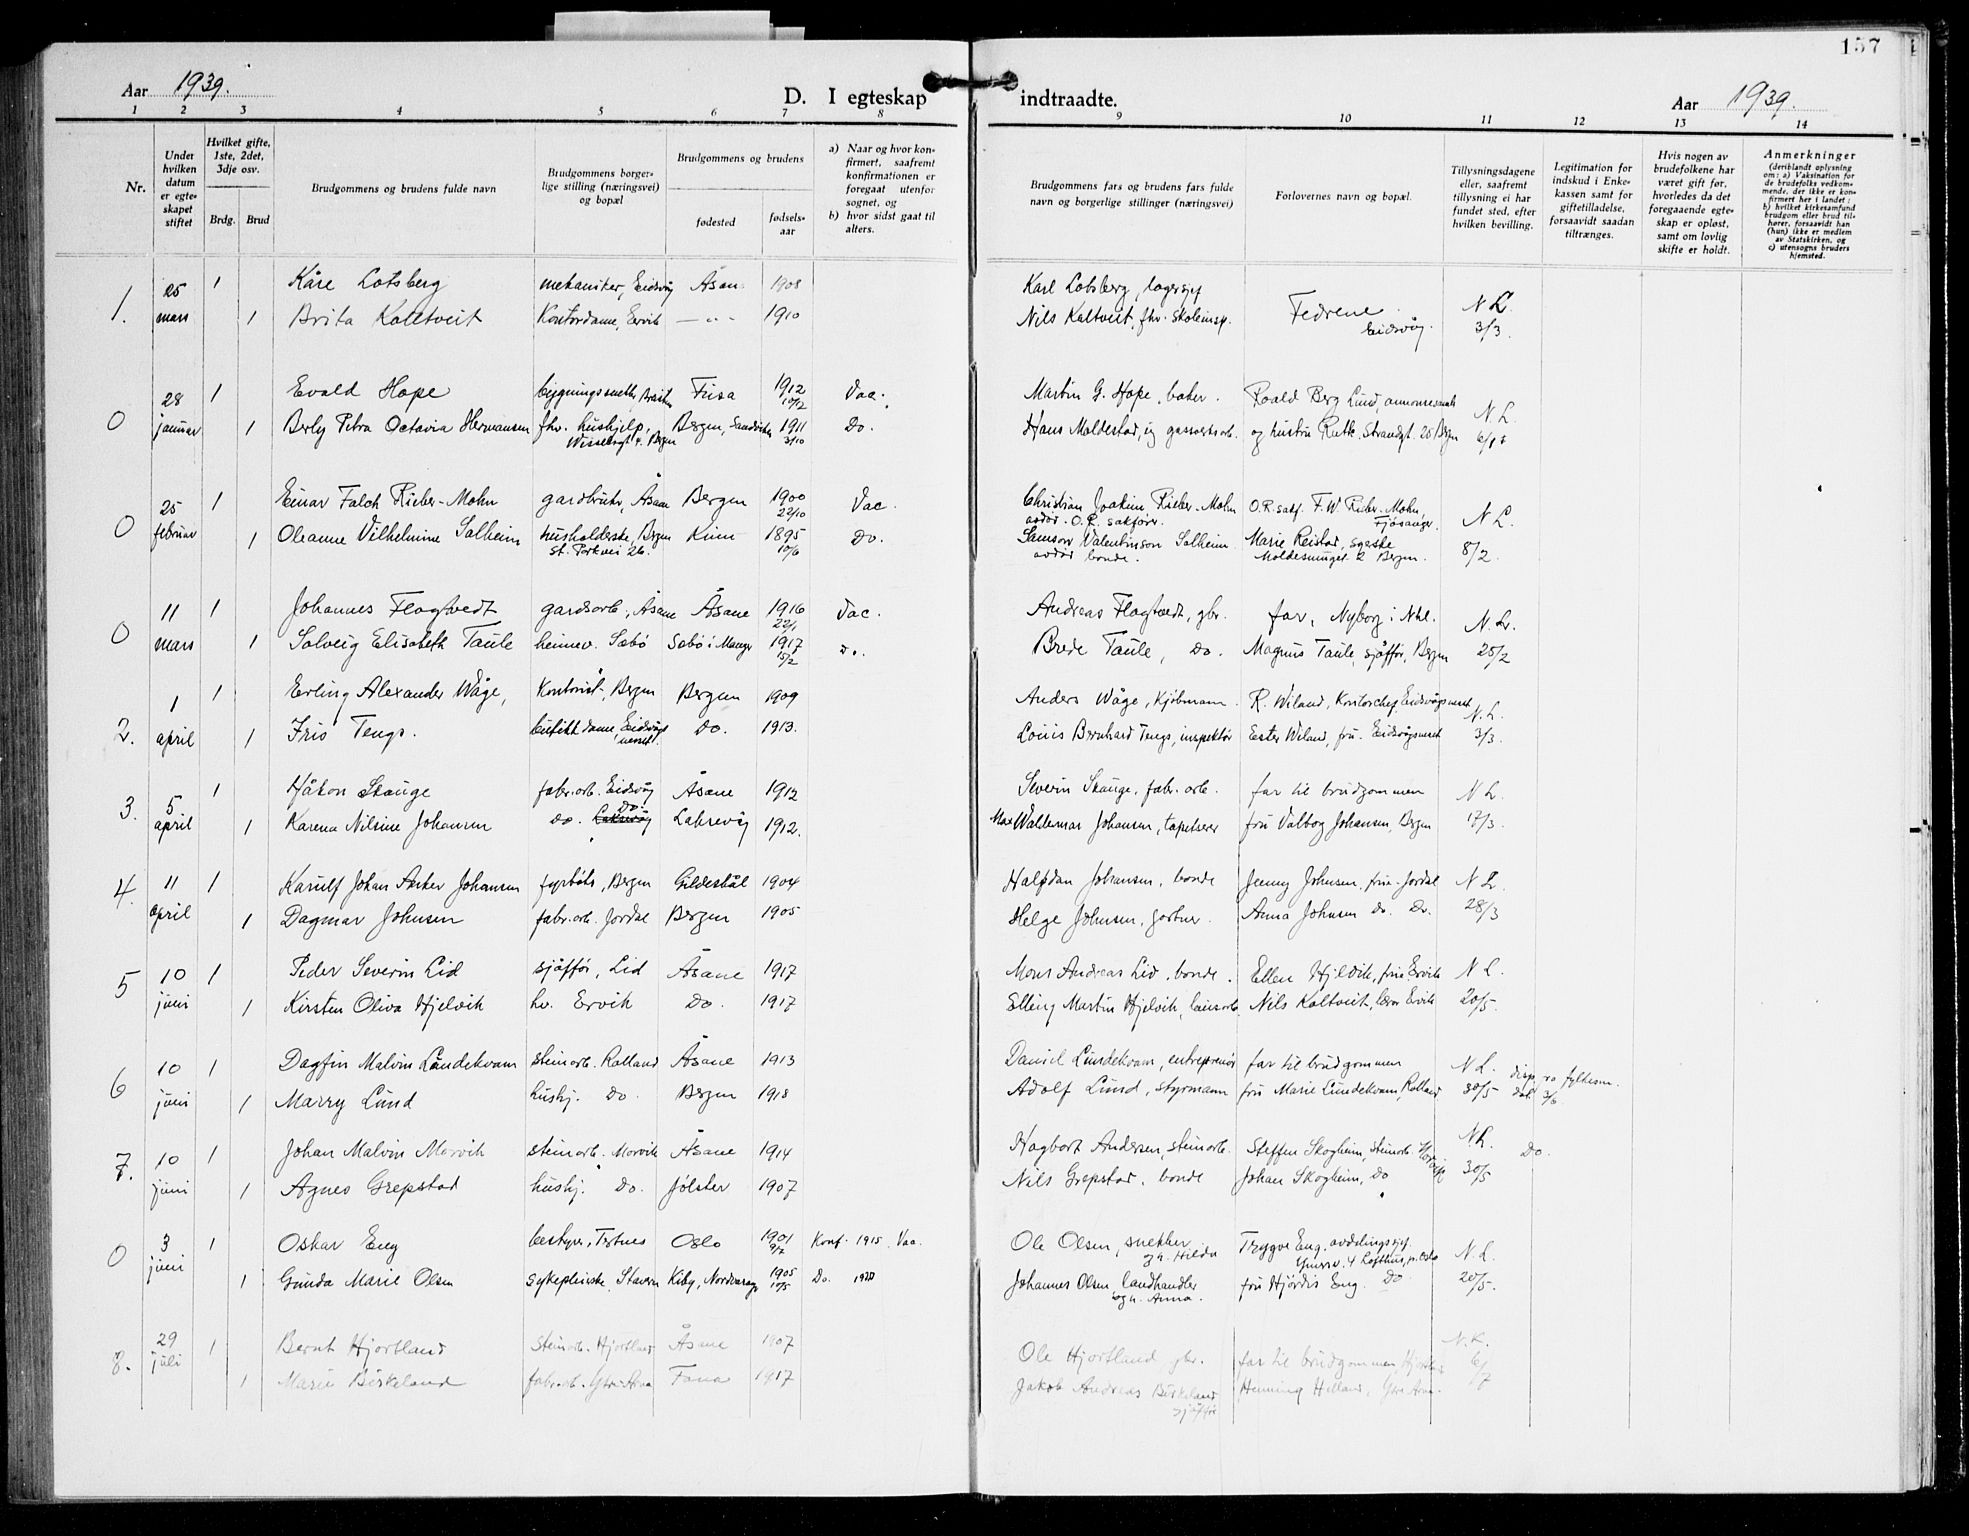 157
Aar 1939.
D. I egteskap indtraadte.
Aar 1939.
1 2 3 4 5 6 7 8 9 10 11 12 13 14
Nr.
Under hvilken datum er egteskapet stiftet
Hvilket gifte, 1ste, 2det, 3dje osv.
Brdg. Brud
Brudgommens og brudens fulde navn
Brudgommens borgerlige stilling (næringsvei) og bopæl
Brudgommens og brudens
fødested
fødselsaar
a) Naar og hvor konfirmert, saafremt konfirmationen er foregaat utenfor sognet, og
b) hvor sidst gaat til alters.
Brudgommens fars og brudens fars fulde navn og borgerlige stillinger (næringsvei)
Forlovernes navn og bopæl.
Tillysningsdagene eller, saafremt tillysning ei har fundet sted, efter hvilken bevilling.
Legitimation for indskud i Enkekassen samt for giftetilladelse, forsaavidt saadan tiltrænges.
Hvis nogen av brudefolkene har været gift før, hvorledes da det foregaaende egteskap er opløst, samt om lovlig skifte er holdt.
Anmerkninger
(deriblandt oplysning om: a) Vaksination for de brudefolks vedkommende, der ikke er konfirmert her i landet; b) hvilket kirkesamfund brudgom eller brud tilhører, forsaavidt han (hun) ikke er medlem av Statskirken, og c) utensogns bruders hjemsted.
1. 25 mars 1 Kåre Lotsberg mekaniker, Eidsvåg Åsane 1908 Karl Lotsberg, lagersjef Fedrene Eidsvåg. N.L. 3/3.
1 Brita Kaltveit Kontordame, Ervik — " — 1910 Nils Kaltveit, fhv. skoleinsp.
0 28 januar 1 Evald Hope bygningssnekker, Fusa 1912 10/2 Vac. Martin G. Hope, baker. Roald Berg Lund, N.L.
1 Berly Petra Octavia Hermansen fhv. hushjelp, Bergen Bergen, Sandviken 1911 3/10 Do. Hans Moldestad, gassverksarb. og hustru Ruth. Strandgt. 20 Bergen
0 25 februar 1 Einar Falch Rieber-Mohn gardbruker, Åsane Bergen 1900 22/10 Vac. Christian Joakim Rieber-Mohn avdød. O.R. sakfører. O.R. sakf. F.W. Rieber-Mohn, Fjøsanger. N.L.
1 Oleanne Vilhelmine Solheim husholderske, Bergen st. Parkvei 26. Kinn 1895 10/6 Do. Samson Valentinson Solheim avdød bonde. Marie Reistad, Moldesmuget 2 Bergen. 8/2.
0 11 mars 1 Johannes Flagtvedt gardsarb, Åsane Åsane 1916 22/1 Vac. Andreas Flagtvedt, gbr. far, Nyborg i Nhl. N.L.
1 Solveig Elisabeth Taule heimev. Sæbø Sæbø i Manger 1917 15/2 Do. Brede Taule, Do. Magnus Taule, sjåffør, Bergen 25/2
2. 1 april 1 Erling Alexander Wåge, Kontorist, Bergen Bergen 1909 Anders Wåge, Kjøbmann. R. Wiland, Kontorchef, Eidsvågneset N.L.
1 Iris Tengs. butikkdame, Eidsvågneset. Do. 1913. Louis Bernhard Tengs, inspektør Ester Wiland, fru. Eidsvågneset 3/3.
3. 5 april 1 Håkon Skauge fabr.arb. Eidsvåg Åsane 1912 Severin Skauge, fabr. arb. far til brudgommen N.L.
1 Karena Nilsine Johansen do. Laksevåg Do. Laksevåg 1912. Max Waldemar Johansen, tapetserer fru Valborg Johansen, Bergen 17/3.
4. 11 april 1 Karulf Johan Anker Johansen fyrbøter, Bergen Gildeskål 1904 Halfdan Johansen, bonde Jenny Johnsen, frue Jordal N.L.
1 Dagmar Johnsen fabr.arb. Jordal Bergen 1905 Helge Johnsen, gartner. Anna Johnsen do. Do. 28/3
5 10 juni 1 Peder Severin Lid sjåffør, Lid Åsane 1917 Mons Andreas Lid, bonde. Ellen Hjelvik, frue Ervik N.L.
1 Kirsten Oliva Hjelvik hv. Ervik Do. 1917 Elling Martin Hjelvik, Nils Kaltveit, lærer Ervik 20/5.
6 10 juni 1 Dagfin Malvin Lundekvam steinarb. Rolland Åsane 1913 Daniel Lundekvam, entreprenør far til brudgommen N.L. disp. fra fylkesm.
1 Marry Lund hushj. Do. Bergen 1918 Adolf Lund, styrmann fru Marie Lundekvam, Rolland 30/5 dat. 3/6.
7. 10 juni 1 Johan Malvin Morvik steinarb. Morvik Åsane 1914 Hagbart Andersen, steinarb. Steffen Skogheim, steinarb. Morvik N.L. Do.
1 Agnes Grepstad hushj. Do. Jølster 1907 Nils Grepstad, bonde Johan Skogheim, Do 30/5
0 3 juni 1 Oskar Eng bestyrer, Tertnes Oslo 1901 9/7 Konf. 1915. Vaa. Ole Olsen, snekker Trygve Eng, avdelingssjef. N.L.
1 Gunda Marie Olsen sykepleierske, Stavern Kiby, Nordvaranger 1905 10/5 Do. Johannes Olsen landhandler og h. Anna. fru Hjørdis Eng. Do 20/5.
8. 29 juli 1 Bernt Hjortland Steinarb. Hjortland Åsane 1907 Ole Hjortland gbr. far til brudgommen, Hjortland N.K.
1 Marie Birkeland fabr.arb. Ytre Arna Fana 1917 Jakob Andreas Birkeland sjåffør Henning Helland, Ytre Arna. 6/7